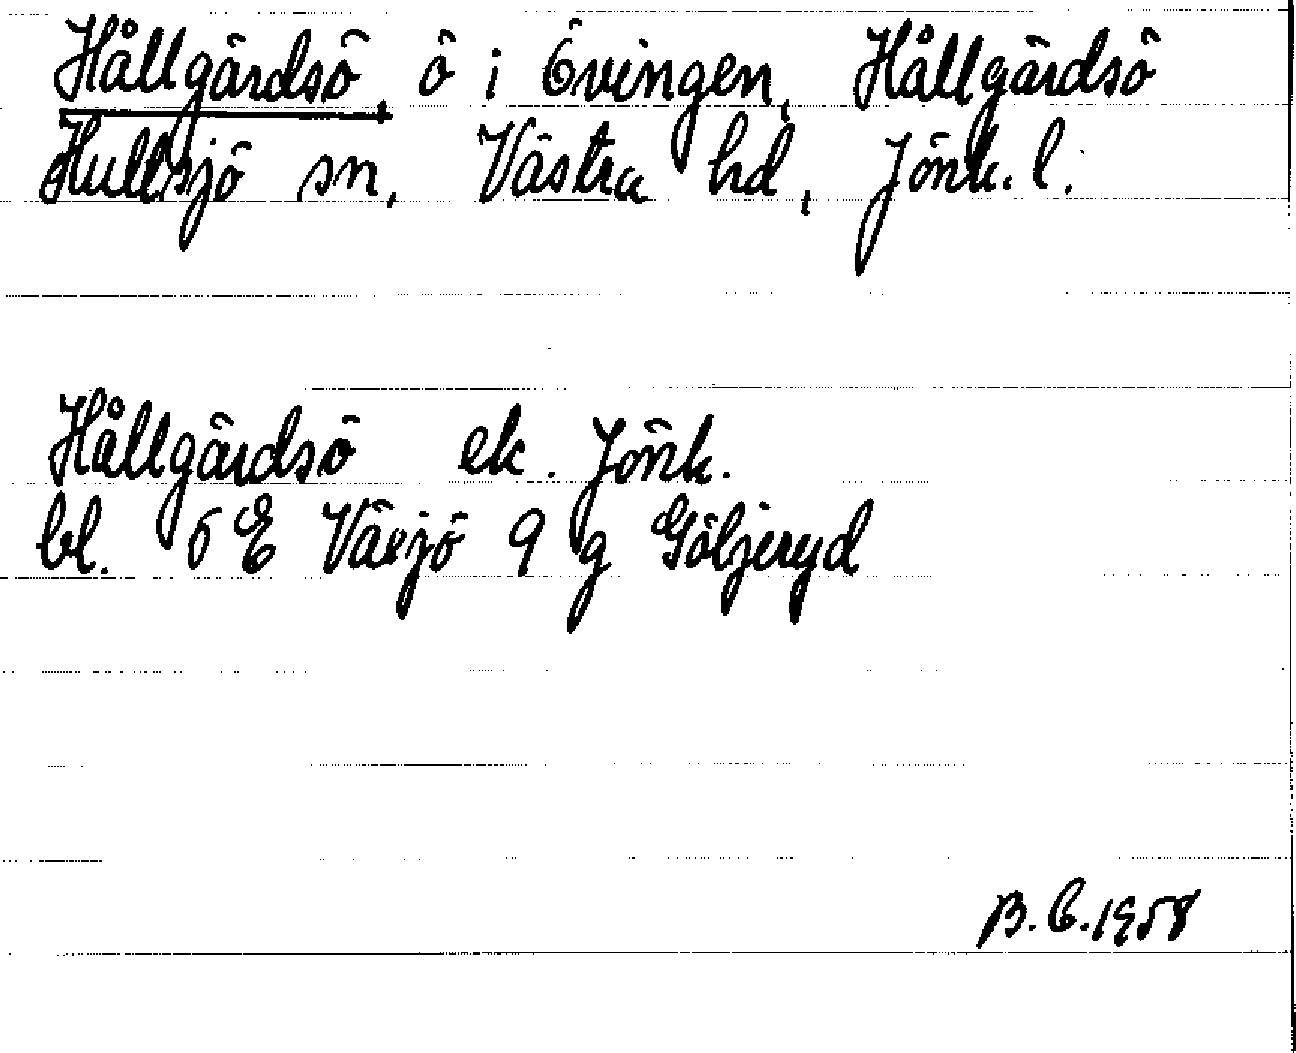 Hållgärdsö, ö i Övingen, Hållgärdsö
Hultsjö sn, Västra hd, Jönk. l.
Hållgärdsö ek. Jönk.
bl. 5 E Växjö 9 g Göljeryd
B.E.1958